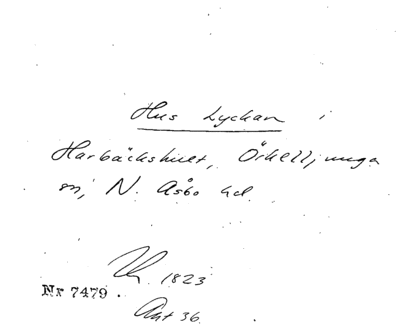 Hus Lyckan i
Harbäckshult, Örkelljunga
sn, N. Åsbo hd.
1823
Nr 7479.
Akt 36